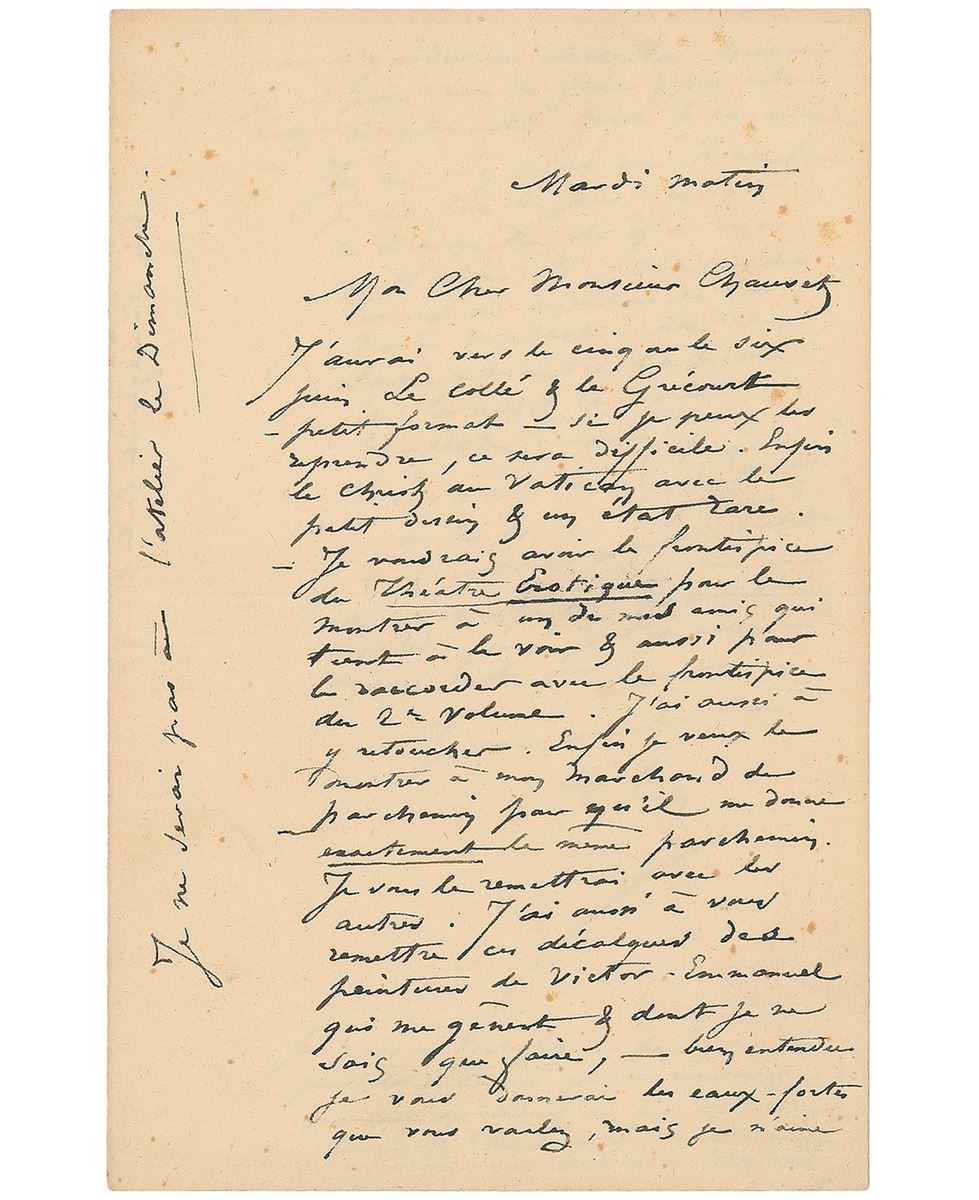 Mardi matin
Mon Cher Monsieur Chauvet
J'aurai vers le cinq ou le six
juin Le Collé & le Grécourt
– petit format – si je peux les
reprendre, ce sera difficile. Enfin
le Christ au Vatican avec le
petit dessin & un état rare.
– Je voudrais avoir le frontispice
du Théâtre Erotique pour le
montrer à un de mes amis qui
tient à le voir & aussi pour
le raccorder avec le frontispice
du 2me Volume. J'ai aussi à
y retoucher. Enfin je veux le
montrer à mon marchand de
parchemin pour qu'il me donne
– exactement le même parchemin.
Je vous le remettrai avec les
autres. J'ai aussi à vous
remettre ces décalques des
peintures de Victor-Emmanuel
qui me gênent & dont je ne
sais que faire, – bien entendu
je vous donnerai les eaux-fortes
que vous voulez, mais je n'aime
Je ne serai pas à l'atelier le Dimanche.